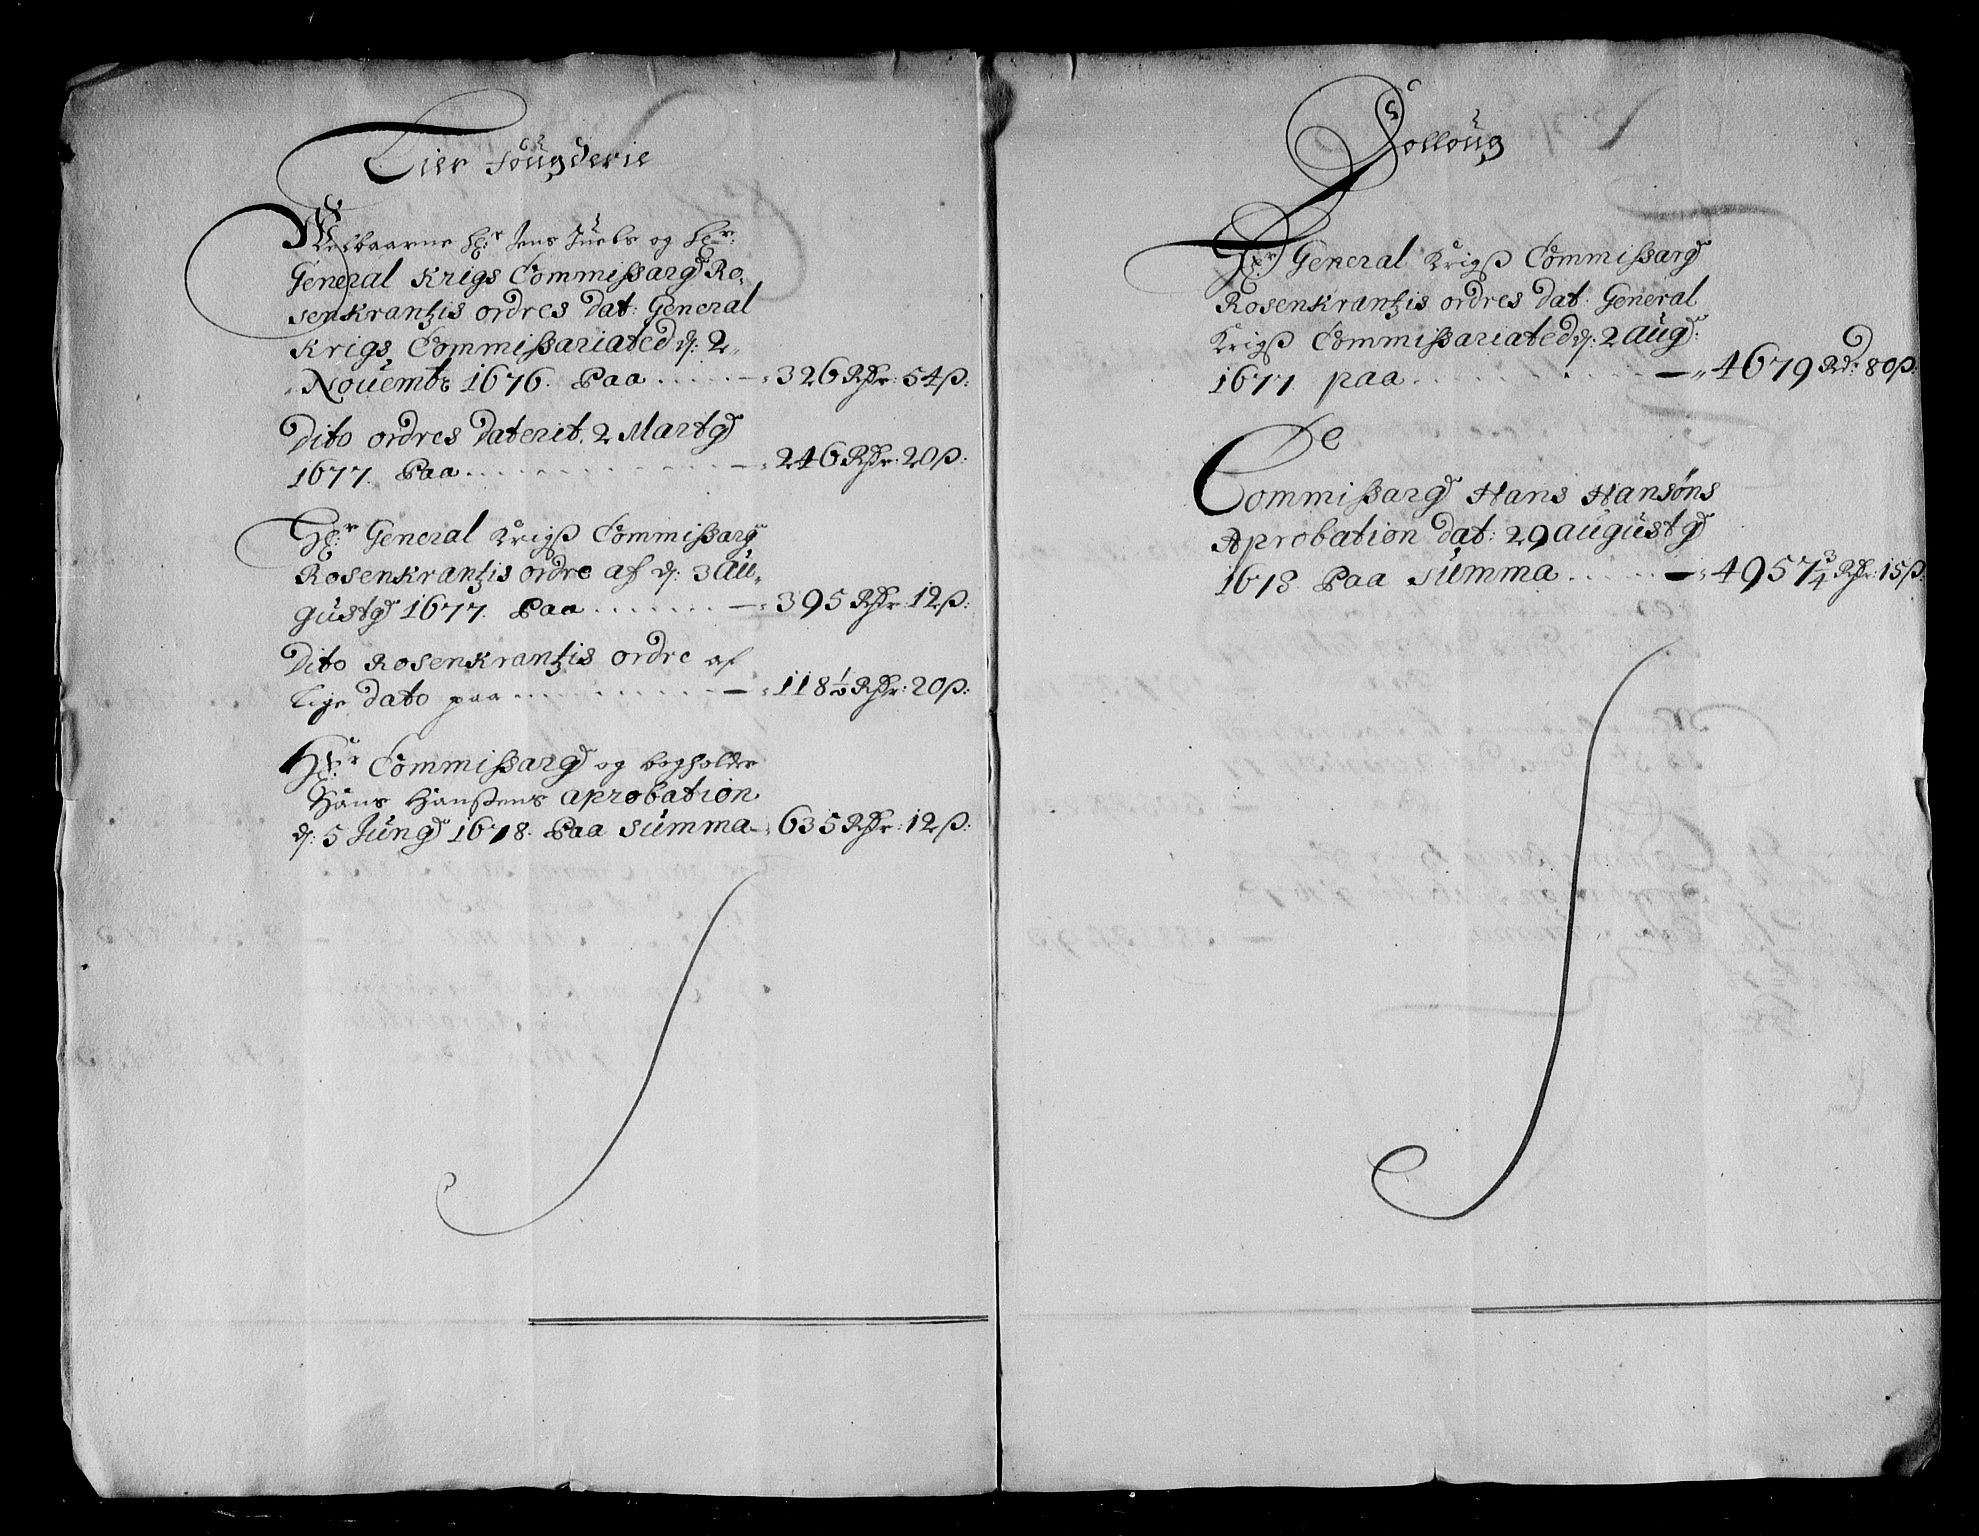 Lier fougderie
Welbaarne Hr: Jens Juels og Hr:
General Krigs Commissarg Ro,,
senkrantzis ordres dat: General
Krigs Commissariated d: 2
Nouemb: 1676. Paa ..... 326 Rdr: 54 ß:
Dito ordres daterit. 2 Martg
1677. Paa ..... 246 Rdr: 20 ß:
Hr: General Krigß Commissarg
Rosenkrantzis ordre af d: 3 Au,,
gustg 1677. Paa ..... 395 Rdr: 12 ß:
Dito Rosenkrantzis ordre af
lige dato paa ..... 118½ Rdr: 20 ß:
Hr: Commissarg og bogholder
Hans Hanßens aprobation
d: 5 Jung 1678. Paa Summa 635 Rdr: 12 ß:
Solloug
Hr: General Krigß Commissarg
Rosenkrantzis ordres dat: General
Krigß Commissariated d: 2 aug:
1677. paa ..... 4679 Rd: 80 ß:
Commissarg Hans Hansøns
Aprobation dat: 29 augustg
1678. Paa Summa ..... 4957¾ Rdr: 15 ß: